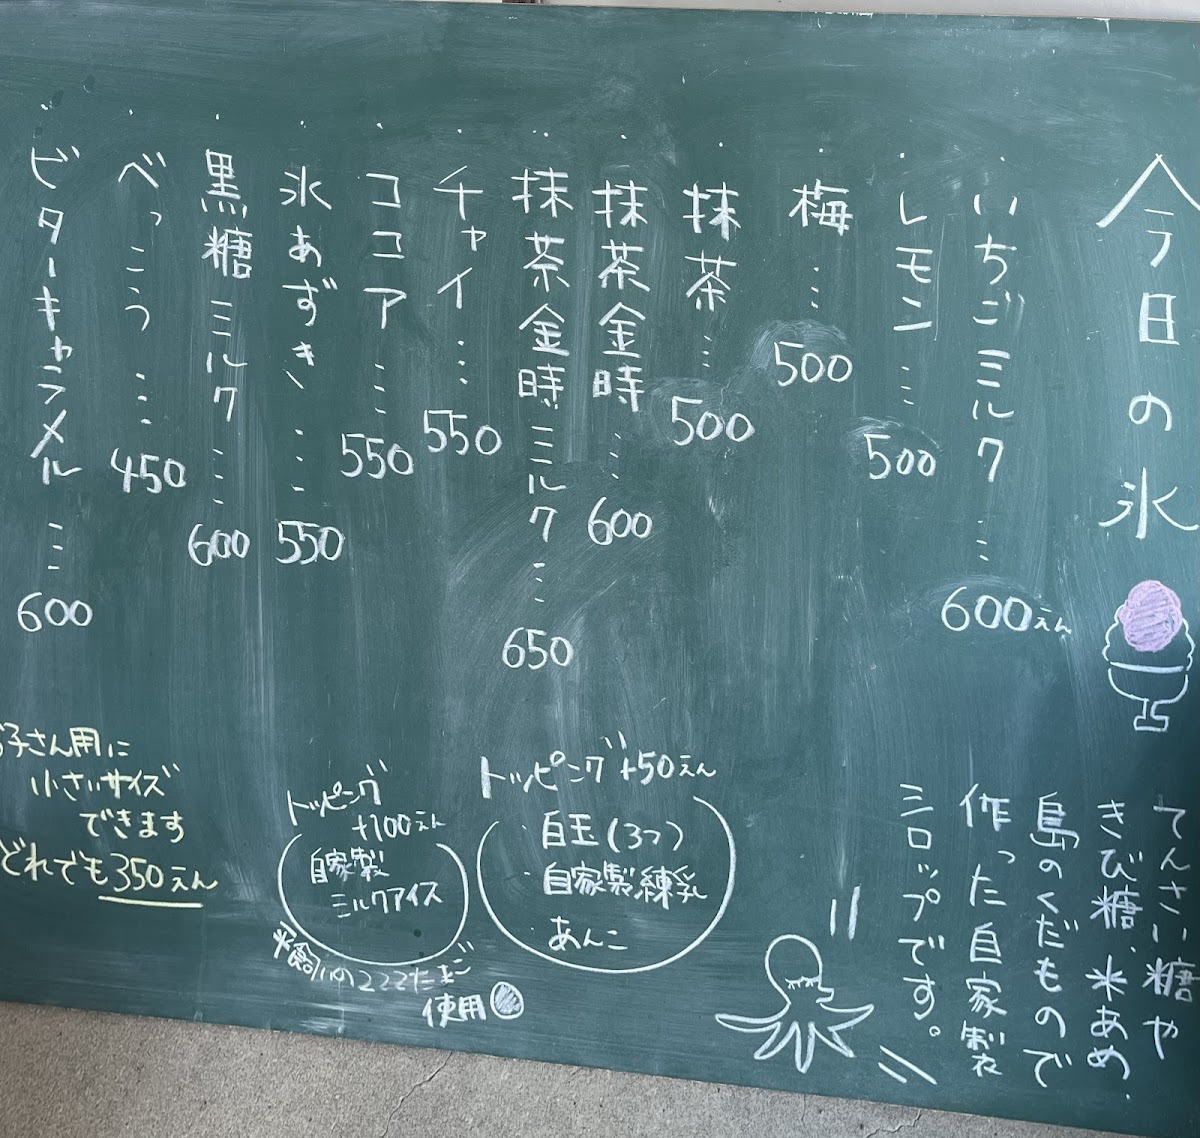 今日の氷
・いちごミルク…600えん
・レモン…500
・梅…500
・抹茶…500
・抹茶金時…600
・抹茶金時ミルク…650
・チャイ…550
・ココア…550
・氷あずき…550
・黒糖ミルク…600
・べっこう…450
・ビターキャラメル…600
てんさい糖や
きび糖、米あめ、
島のくだもので
作った自家製
シロップです。
トッピング +50えん
・白玉(3つ)
・自家製練乳
・あんこ
トッピング
+100えん
自家製
ミルクアイス
平飼いの222たまご
使用
お子さん用に
小さいサイズ
できます
どれでも350えん